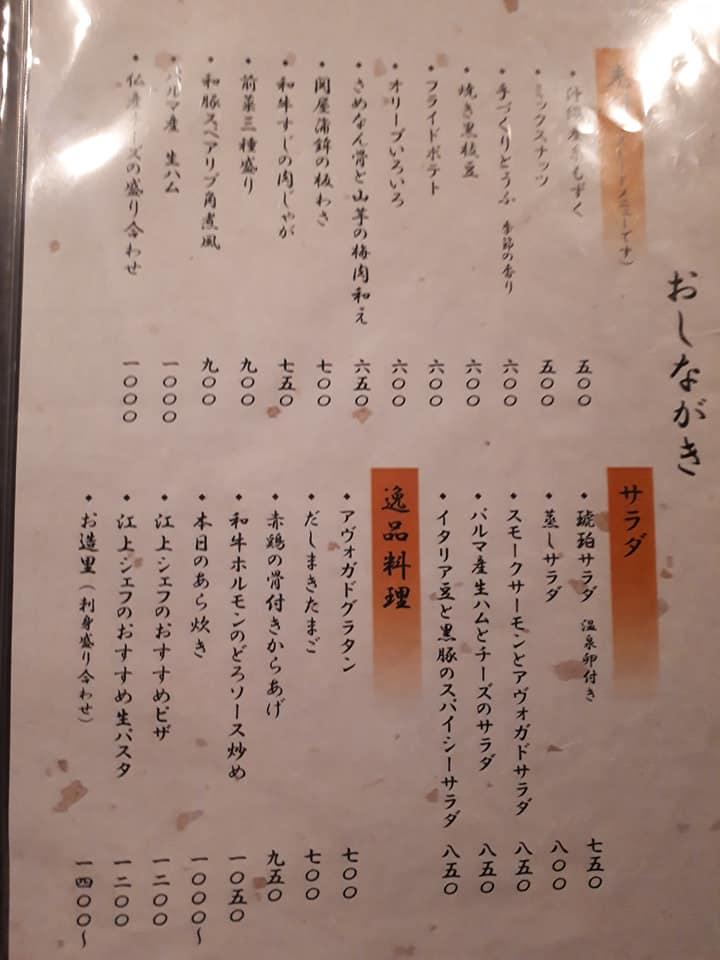 おしながき
メニューです）
もずく 五〇〇
・ミックスナッツ 五〇〇
・手づくりとうふ 季節の香り 六〇〇
・焼き黒枝豆 六〇〇
・フライドポテト 六〇〇
・オリーブいろいろ 六〇〇
・さめなん骨と山芋の梅肉和え 六五〇
・関屋蒲鉾の板わさ 七〇〇
・和牛すじの肉じゃが 七五〇
・前菜三種盛り 九〇〇
・和豚スペアリブ角煮風 九〇〇
・パルマ産 生ハム 一〇〇〇
・仏産チーズの盛り合わせ 一〇〇〇
サラダ
・琥珀サラダ 温泉卵付き 七五〇
・蒸しサラダ 八〇〇
・スモークサーモンとアヴォガドサラダ 八五〇
・パルマ産生ハムとチーズのサラダ 八五〇
・イタリア豆と黒豚のスパイシーサラダ 八五〇
逸品料理
・アヴォガドグラタン 七〇〇
・だしまきたまご 七〇〇
・赤鶏の骨付きからあげ 九五〇
・和牛ホルモンのどろソース炒め 一〇五〇
・本日のあら炊き 一〇〇〇〜
・江上シェフのおすすめピザ 一二〇〇
・江上シェフのおすすめ生パスタ 一二〇〇
・お造里（刺身盛り合わせ） 一四〇〇〜